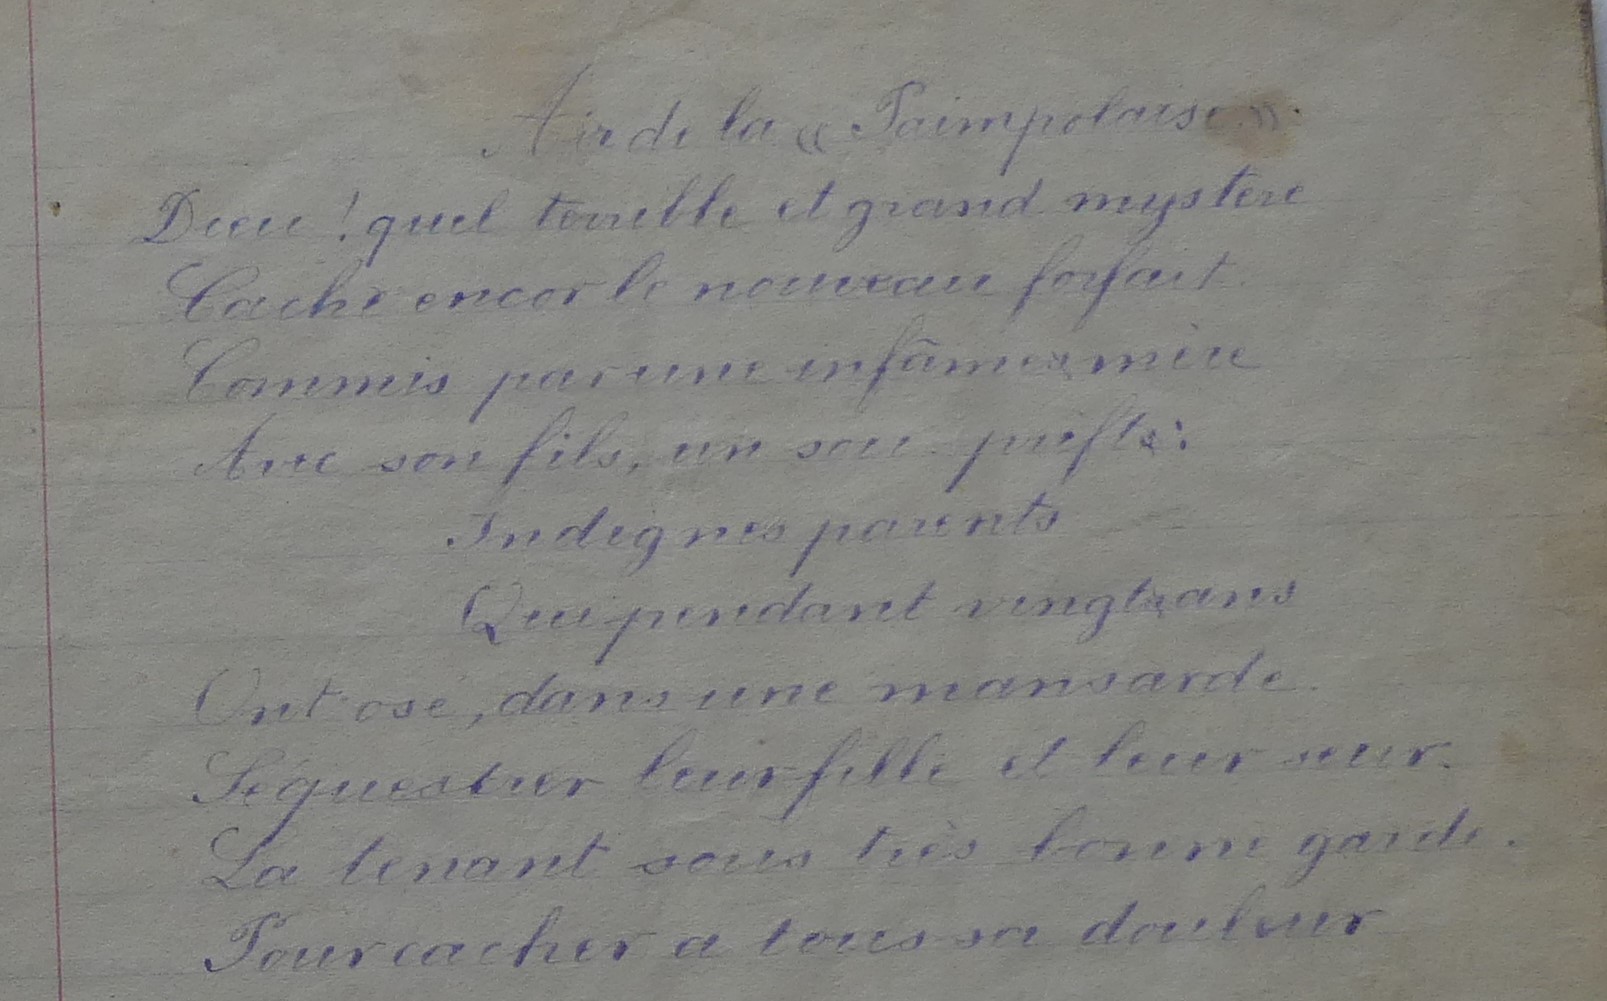 Air de la « Paimpolaise ».
Dieu ! quel terrible et grand mystère
Cache encor le nouveau forfait
Commis par une infâme mère
Avec son fils, un sous-préfet:
Indignes parents
Qui pendant vingt ans
Ont osé, dans une mansarde
Séquestrer leur fille et leur sœur.
La tenant sous très bonne garde.
Pour cacher a tous sa douleur